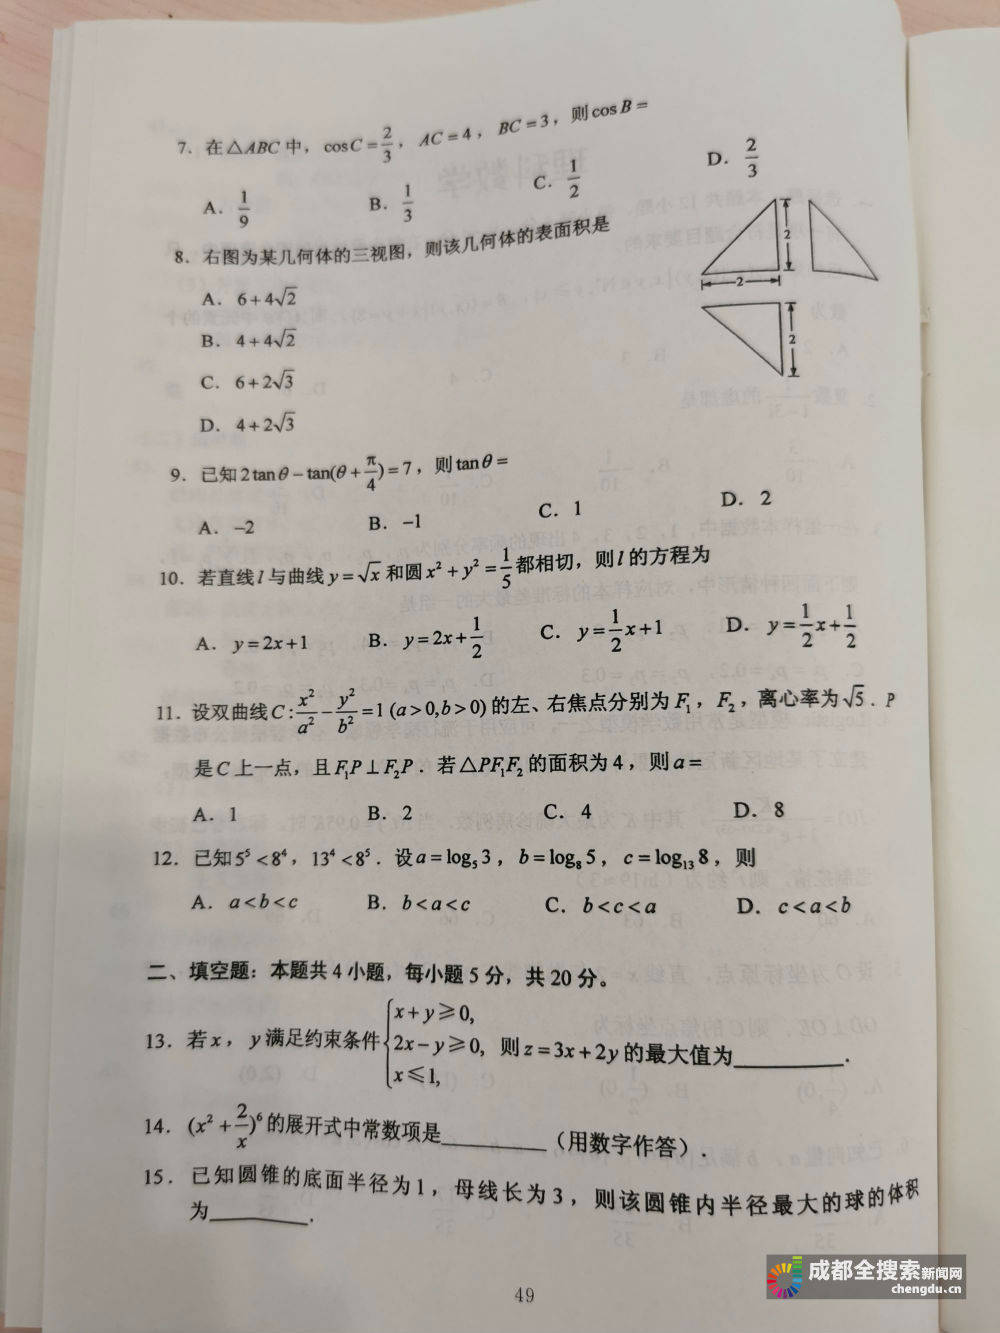 7. 在△ABC 中，cosC=2/3，AC=4，BC=3，则cosB=
A. 1/9 B. 1/3 C. 1/2 D. 2/3
8. 右图为某几何体的三视图，则该几何体的表面积是
A. 6+4√2
B. 4+4√2
C. 6+2√3
D. 4+2√3
2
2
2
9. 已知2tanθ−tan(θ+π/4)=7，则tanθ=
A. −2 B. −1 C. 1 D. 2
10. 若直线l与曲线y=√x和圆x²+y²=1/5都相切，则l的方程为
A. y=2x+1 B. y=2x+1/2 C. y=1/2x+1 D. y=1/2x+1/2
11. 设双曲线C:x²/a²−y²/b²=1(a>0,b>0)的左、右焦点分别为F₁，F₂，离心率为√5．P
是C上一点，且F₁P⊥F₂P．若△PF₁F₂的面积为4，则a=
A. 1 B. 2 C. 4 D. 8
12. 已知5⁵<8⁴，13⁴<8⁵．设a=log₅3，b=log₈5，c=log₁₃8，则
A. a<b<c B. b<a<c C. b<c<a D. c<a<b
二、填空题：本题共4小题，每小题5分，共20分。
13. 若x，y满足约束条件{x+y⩾0, 2x−y⩾0, x⩽1, 则z=3x+2y的最大值为_________.
14. (x²+2/x)⁶的展开式中常数项是_________（用数字作答）.
15. 已知圆锥的底面半径为1，母线长为3，则该圆锥内半径最大的球的体积
为_________.
49
成都全搜索新闻网
chengdu.cn